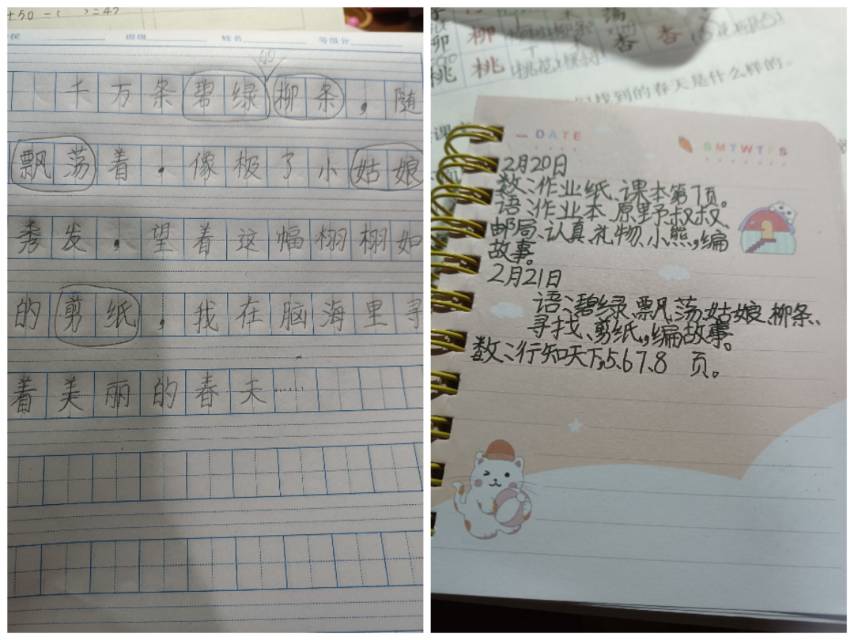 +50-( )=47
姓名
的
千万条碧绿柳条，随
飘荡着，像极了小姑娘
秀发，望着这幅栩栩如
的剪纸，我在脑海里寻
着美丽的春天……
柳
杏 杏
桃 桃
找到的春天是什么样的。
DATE
SMTWTFS
2月20日
数：作业纸、课本第7页。
语：作业本、原野、叔叔、
邮局、认真、礼物、小熊，编
故事。
2月21日
语：碧绿、飘荡、姑娘、柳条、
寻找、剪纸，编故事。
数：行知天下5.6.7.8 页。